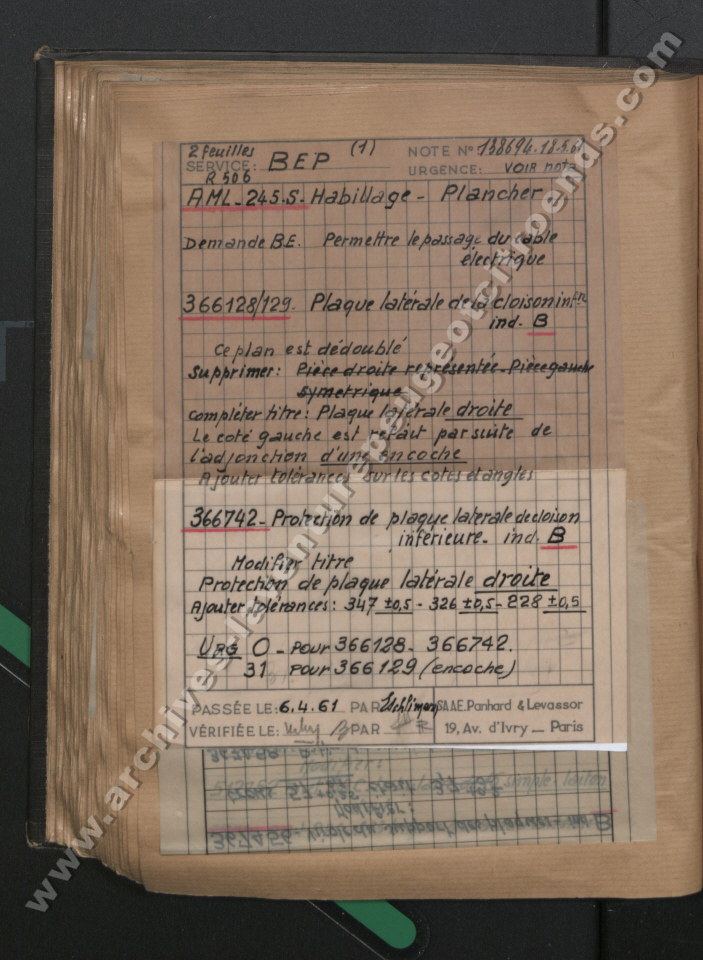 2 feuilles
SERVICE: BEP (1)
NOTE N° 138694. 18.5.61
R 506
URGENCE: VOIR nota
AML_245.S. Habillage - Plancher
Demande B.E. Permettre le passage du cable
électrique
366128/129. Plaque latérale de la cloison infre
ind. B
Ce plan est dédoublé
Supprimer: Pièce droite représentée. Pièce gauche
symetrique
Compléter titre: Plaque latérale droite
Le coté gauche est refait par suite de
l'adjonction d'une encoche
Ajouter tolérances sur les cotes et angles
366742_ Protection de plaque laterale de cloison
inférieure_ ind. B
Modifier titre
Protection de plaque latérale droite
Ajouter tolérances: 347 ±0,5 - 326 ±0,5 - 228 ±0,5
URG 0 _ pour 366128_ 366742.
31 pour 366129 (encoche)
PASSÉE LE: 6.4.61 PAR
VÉRIFIÉE LE: PAR
SAAE.Panhard & Levassor
19, Av. d'Ivry _ Paris
Modifier:
Modifier:
ind. B
www.archives-laventurepeugeotcitroends.com